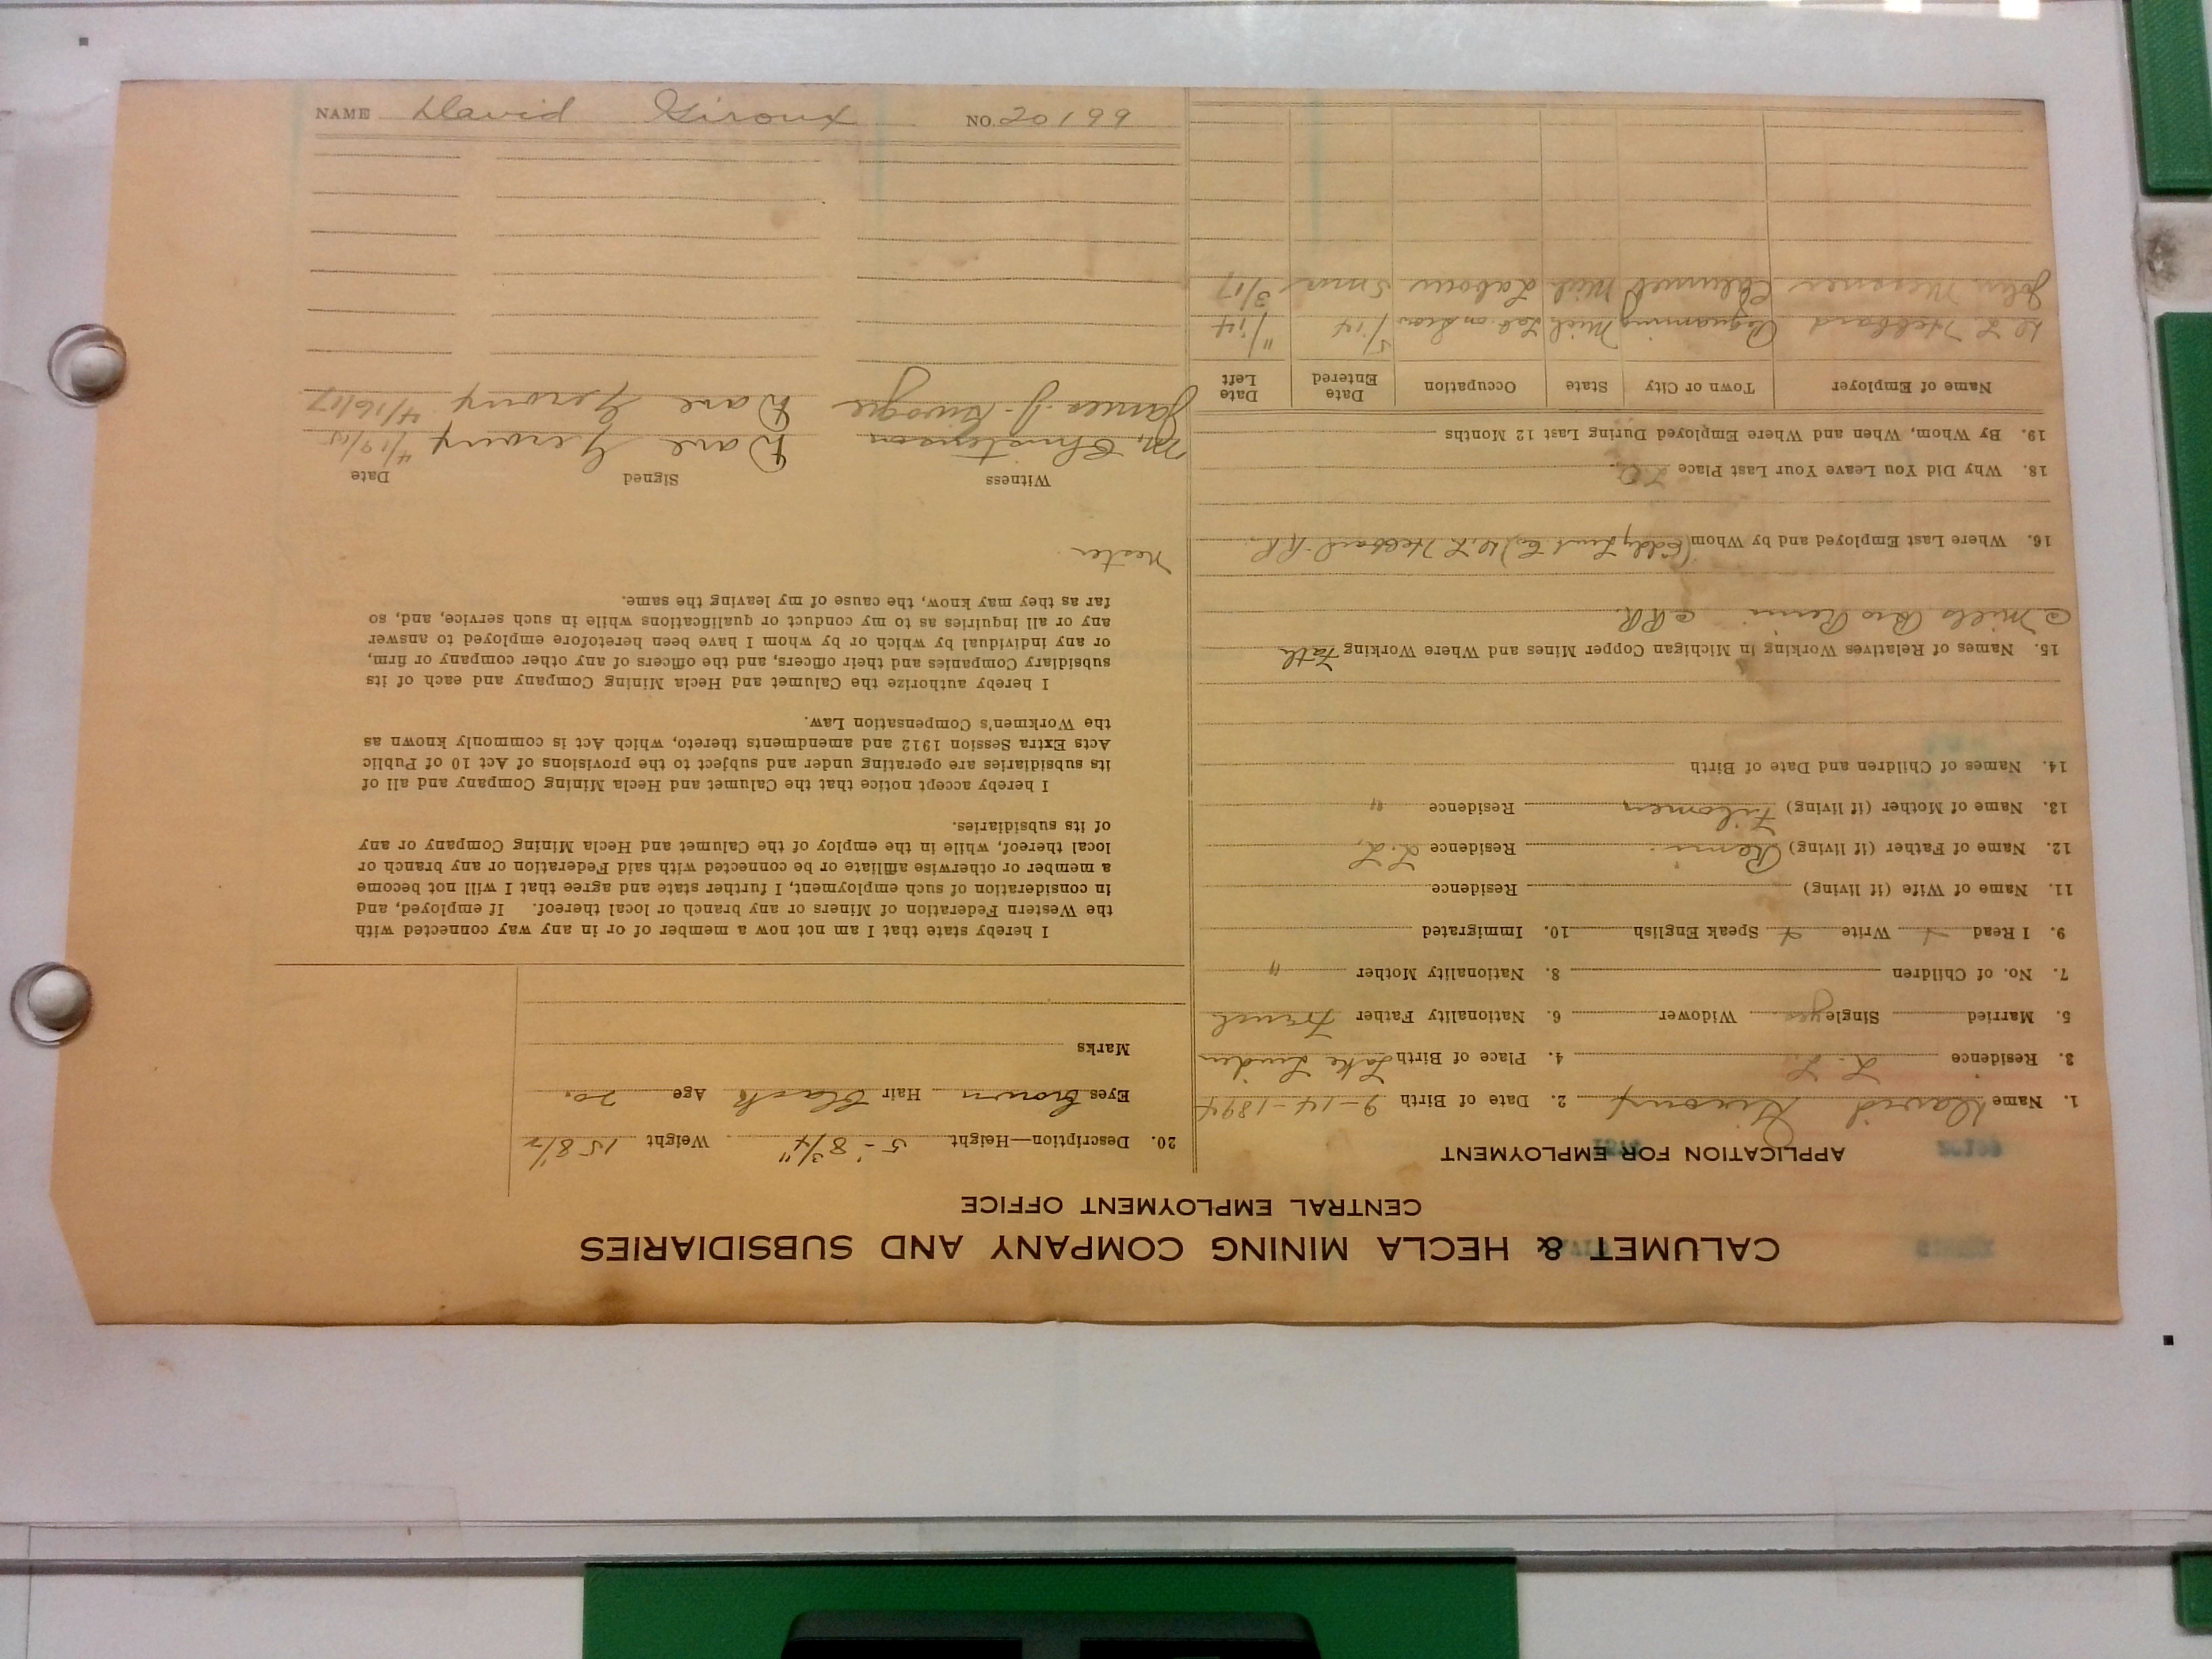 CALUMET & HECLA MINING COMPANY AND SUBSIDIARIES
CENTRAL EMPLOYMENT OFFICE
APPLICATION FOR EMPLOYMENT
1. Name David Giroux 2. Date of Birth 9-14-1894
3. Residence L. L. 4. Place of Birth Lake Linden
5. Married Single yes Widower 6. Nationality Father French
7. No. of Children 8. Nationality Mother "
9. I Read Write Speak English 10. Immigrated
11. Name of Wife (if living) Residence
12. Name of Father (if living) Remi Residence L. L.
13. Name of Mother (if living) Filomen Residence "
14. Names of Children and Date of Birth
15. Names of Relatives Working in Michigan Copper Mines and Where Working Fath
Mills Bro Remi R.R.
16. Where Last Employed and by Whom Hebbard
18. Why Did You Leave Your Last Place
19. By Whom, When and Where Employed During Last 12 Months
Name of Employer Town or City State Occupation Date Entered Date Left
Hebbard Pequaming Mich 5/14 11/14
John Messner Calumet Mich Labour 5 mos 3/17
20. Description—Height 5-8 3/4" Weight 158 1/2
Eyes brown Hair black Age 20
Marks
I hereby state that I am not now a member of or in any way connected with
the Western Federation of Miners or any branch or local thereof. If employed, and
in consideration of such employment, I further state and agree that I will not become
a member or otherwise affiliate or be connected with said Federation or any branch or
local thereof, while in the employ of the Calumet and Hecla Mining Company or any
of its subsidiaries.
I hereby accept notice that the Calumet and Hecla Mining Company and all of
its subsidiaries are operating under and subject to the provisions of Act 10 of Public
Acts Extra Session 1912 and amendments thereto, which Act is commonly known as
the Workmen's Compensation Law.
I hereby authorize the Calumet and Hecla Mining Company and each of its
subsidiary Companies and their officers, and the officers of any other company or firm,
or any individual by which or by whom I have been heretofore employed to answer
any or all inquiries as to my conduct or qualifications while in such service, and, so
far as they may know, the cause of my leaving the same.
Nester
Witness Signed Date
M. Christenson Dave Geroux 4/19/15
James J. Dave Geroux 4/16/17
NAME David Giroux NO. 20199